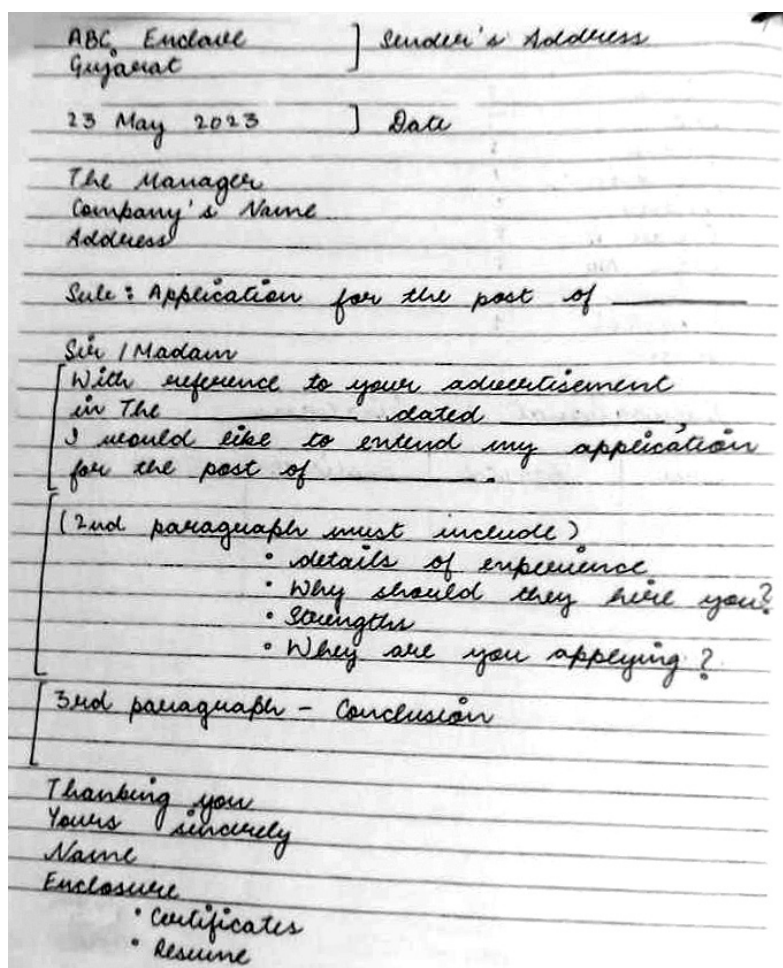 ABC Enclave ] Sender's Address
Gujarat
23 May 2023 ] Date
The Manager
Company's Name
Address
Sub: Application for the post of ________
Sir / Madam
With reference to your advertisement
in The ________ dated ________,
I would like to extend my application
for the post of ________.
(2nd paragraph must include)
• details of experience
• Why should they hire you?
• Strengths
• Why are you applying?
3rd paragraph - Conclusion
Thanking you
Yours sincerely
Name
Enclosure
• Certificates
• Resume